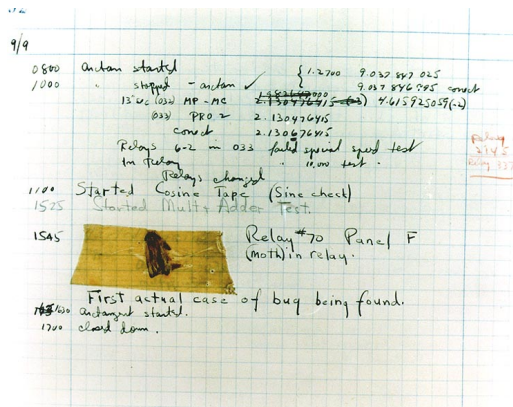 9/9
0800 antan started { 1.2700 9.037 847 025
1000 " stopped - antan ✓ 9.037 846 995 conect
13"uc (032) MP-MC 2.130476415 4.615925059(-2)
(033) PRO 2 2.130476415
conect 2.130676415
Relays 6-2 in 033 failed special speed test
In Relay " 10,000 test.
Relay 2145
Relay 337
Relays changed
1100 Started Cosine Tape (Sine check)
1525 Started Mult+Adder Test.
1545 Relay #70 Panel F
(moth) in relay.
First actual case of bug being found.
1630 antangent started.
1700 closed down.